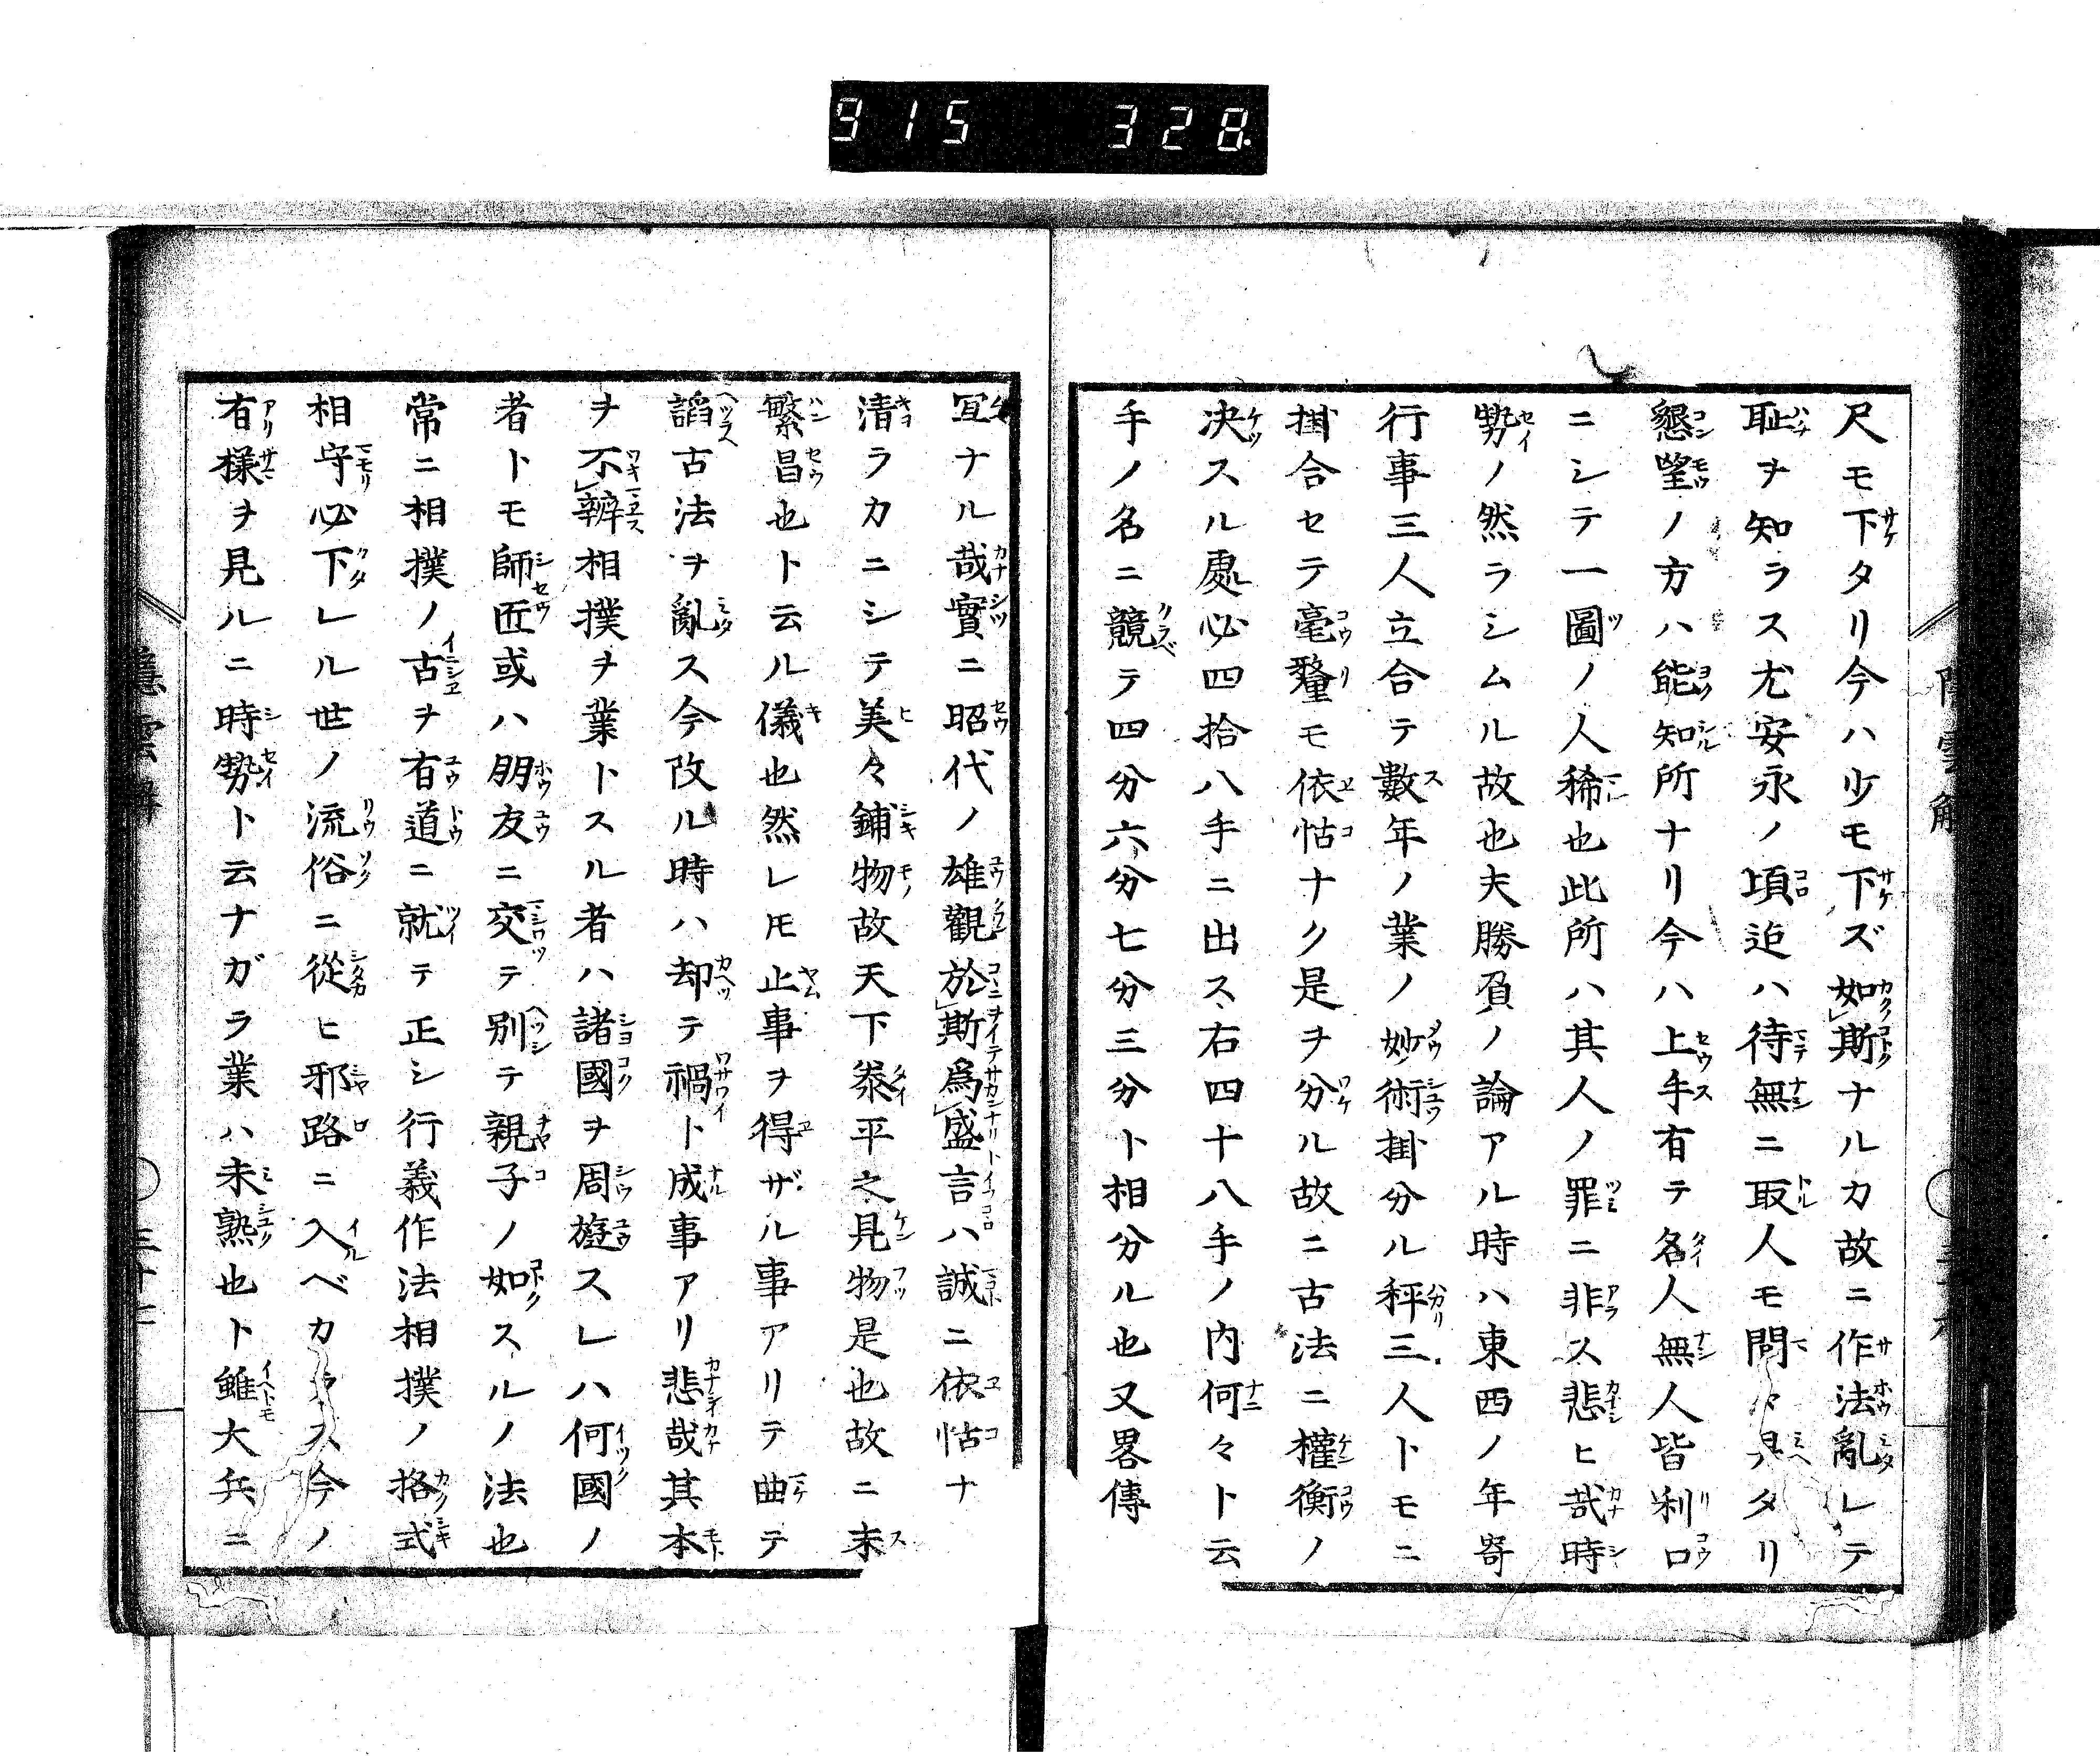 915 328
尺モ下タリ今ハ少モ下ズ如斯ナルカ故ニ作法亂レテ
耻ヲ知ラス尤安永ノ頃迄ハ待無ニ取人モ問々見タリ
懇望ノ方ハ能知所ナリ今ハ上手有テ名人無人皆利口
ニシテ一圖ノ人稀也此所ハ其人ノ罪ニ非ス悲ヒ哉時
勢ノ然ラシムル故也夫勝負ノ論アル時ハ東西ノ年寄
行事三人立合テ數年ノ業ノ妙術掛分ル秤三人トモニ
掛合セテ毫釐モ依怙ナク是ヲ分ル故ニ古法ニ權衡ノ
決スル處必四拾八手ニ出ス右四十八手ノ内何々ト云
手ノ名ニ競テ四分六分七分三分ト相分ル也又畧傳
冝ナル哉實ニ昭代ノ雄觀於斯爲盛言ハ誠ニ依怙ナ
清ラカニシテ美々鋪物故天下泰平之見物是也故ニ末
繁昌也ト云ル儀也然レ𪜈止事ヲ得ザル事アリテ曲テ
謟古法ヲ亂ス今改ル時ハ却テ禍ト成事アリ悲哉其本
ヲ不辨相撲ヲ業トスル者ハ諸國ヲ周遊スレハ何國ノ
者トモ師匠或ハ朋友ニ交テ別テ親子ノ如スルノ法也
常ニ相撲ノ古ヲ有道ニ就テ正シ行義作法相撲ノ格式
相守必下レル世ノ流俗ニ從ヒ邪路ニ入ベカラス今ノ
有様ヲ見ルニ時勢ト云ナガラ業ハ未熟也ト雖大兵ニ